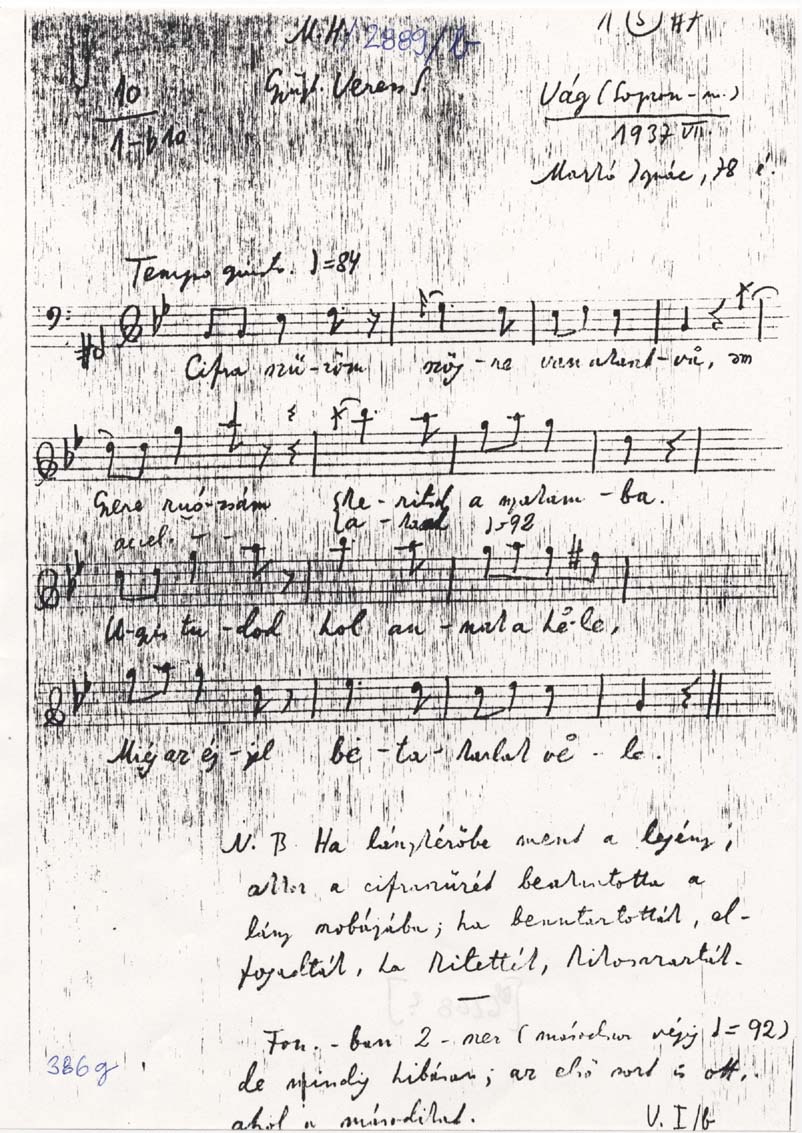 M.H. 2889/b
10
Gyűjt. Veress S.
Vág (Sopron-m.)
1937 VII.
Ignác, 78 é.
Tempo giusto. ♩=84
Cifra szű-röm szög-re van akaszt-vå, äm
Gere ruó-zsám te-ritsd a nyakam-ba.
a-kaszd ♩=92
accel. - -
U-gyis tu-dod hol an-nak a hë-le,
Míg az éj-jel bé-ta-karlak vë-le.
N. B Ha lánykérőbe ment a legény,
akkor a cifraszűrét beakasztotta a
lány szobájába; ha benntartották, el-
fogadták, ha kitették, kikosarazták.
Fon.-ban 2-szer (másodszor végig ♩=92)
de mindig hibásan; az első sort is ott,
ahol a másodikat.
V. I/b
386g